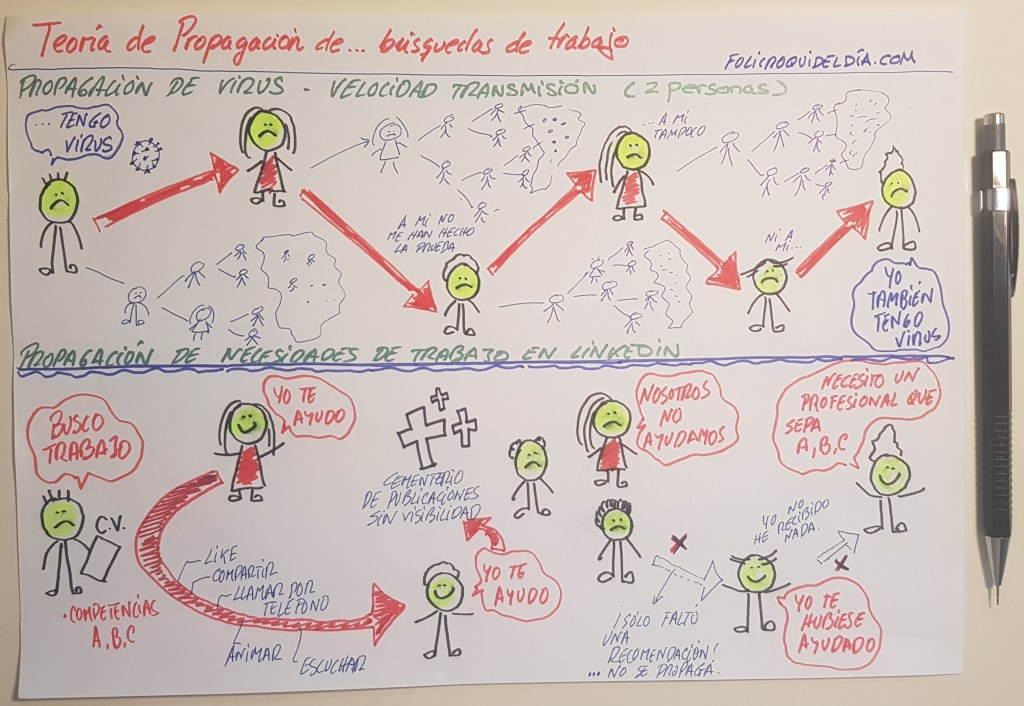 Teoría de Propagación de... búsquedas de trabajo
FOLICROQUIDELDÍA.COM
PROPAGACIÓN DE VIRUS - VELOCIDAD TRANSMISIÓN (2 personas)
... TENGO
VIRUS
A MI NO
ME HAN HECHO
LA PRUEBA
... A MI
TAMPOCO
NI A
MI...
YO
TAMBIÉN
TENGO
VIRUS
PROPAGACIÓN DE NECESIDADES DE TRABAJO EN LINKEDIN
BUSCO
TRABAJO
C.V.
• COMPETENCIAS
A, B, C
YO TE
AYUDO
LIKE
COMPARTIR
LLAMAR POR
TELÉFONO
ANIMAR
ESCUCHAR
CEMENTERIO
DE PUBLICACIONES
SIN VISIBILIDAD
YO TE
AYUDO
NOSOTROS
NO
AYUDAMOS
¡SÓLO FALTÓ
UNA
RECOMENDACIÓN!
... NO SE PROPAGA.
YO NO
HE RECIBIDO
NADA.
YO TE
HUBIESE
AYUDADO
NECESITO UN
PROFESIONAL QUE
SEPA
A, B, C